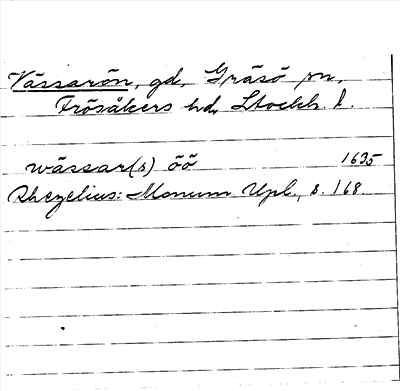 Vässarön, gd, Gräsö sn,
Frösåkers hd, Stockh. l.
wässar(s) öö 1635
Rhezelius: Monum. Upl., s. 168.